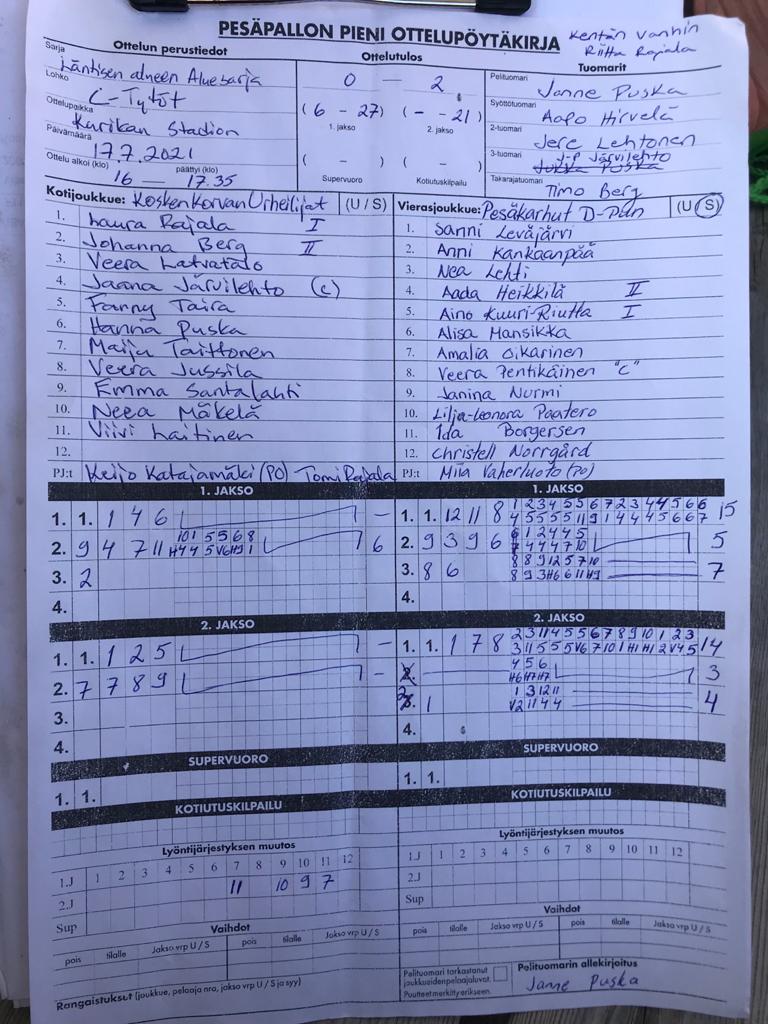 PESÄPALLON PIENI OTTELUPÖYTÄKIRJA
Kentän vanhin
Riitta Rajala
Ottelun perustiedot
Ottelutulos
Tuomarit
Sarja
Läntisen alueen Aluesarja
Lohko
C-Tytöt
Ottelupaikka
Kurikan Stadion
Päivämäärä
17.7.2021
Ottelu alkoi (klo) päättyi (klo)
16 — 17.35
0 – 2
(6 - 27) (- - 21)
1. jakso 2. jakso
( - ) ( - )
Supervuoro Kotiutuskilpailu
Pelituomari
Janne Puska
Syöttötuomari
Aapo Hirvelä
2-tuomari
Jere Lehtonen
3-tuomari
J-P Järvilehto
Jukka Puska
Takarajatuomari
Timo Berg
Kotijoukkue: Koskenkorvan Urheilijat (U / S)
1. Laura Rajala I
2. Johanna Berg II
3. Veera Latvatalo
4. Jaana Järvilehto (c)
5. Fanny Taira
6. Hanna Puska
7. Maiju Taittonen
8. Veera Jussila
9. Emma Santalahti
10. Neea Mäkelä
11. Viivi Laitinen
12.
PJ:t Keijo Katajamäki (PO) Tomi Rajala
Vierasjoukkue: Pesäkarhut D-pun (U / S)
1. Sanni Leväjärvi
2. Anni Kankaanpää
3. Nea Lehti
4. Aada Heikkilä II
5. Aino Kuuri-Riutta I
6. Alisa Mansikka
7. Amalia Oikarinen
8. Veera Pentikäinen "C"
9. Janina Nurmi
10. Lilja-Leonora Paatero
11. Ida Borgersen
12. Christell Norrgård
PJ:t Miia Vaherluoto (PO)
1. JAKSO
1. 1. 1 4 6 –
10 1 5 5 6 8
2. 9 4 7 11 H4 4 5 V6 H9 1 6
3. 2
4.
2. JAKSO
1. 1. 1 2 5 –
2. 7 7 8 9 –
3.
4.
SUPERVUORO
1. 1.
KOTIUTUSKILPAILU
1. JAKSO
1 2 3 4 5 5 6 7 2 3 4 4 5 6 6
1. 1. 12 11 8 4 5 5 5 5 11 9 1 4 4 4 5 6 6 7 15
6 1 2 4 4 5
2. 9 3 9 6 4 4 4 7 10 5
8 8 9 12 5 7 10
3. 8 6 8 9 3 H6 6 11 H9 7
4.
2. JAKSO
2 3 11 4 5 5 6 7 8 9 10 1 2 3
1. 1. 1 7 8 3 11 5 5 5 V6 7 10 1 H1 H1 2 V4 5 14
4 5 6
2. H6 H7 H7 3
1 3 12 11
3. 1 V2 11 4 4 4
4.
SUPERVUORO
1. 1.
KOTIUTUSKILPAILU
Lyöntijärjestyksen muutos
1.J 1 2 3 4 5 6 7 8 9 10 11 12
2.J 11 10 9 7
Sup
Vaihdot
pois tilalle Jakso vrp U / S pois tilalle Jakso vrp U / S
Rangaistukset (joukkue, pelaaja nro, jakso vrp U / S ja syy)
Lyöntijärjestyksen muutos
1.J 1 2 3 4 5 6 7 8 9 10 11 12
2.J
Sup
Vaihdot
pois tilalle Jakso vrp U / S pois tilalle Jakso vrp U / S
Pelituomari tarkastanut
joukkueiden pelaajaluvat.
Puutteet merkitty erikseen.
Pelituomarin allekirjoitus
Janne Puska